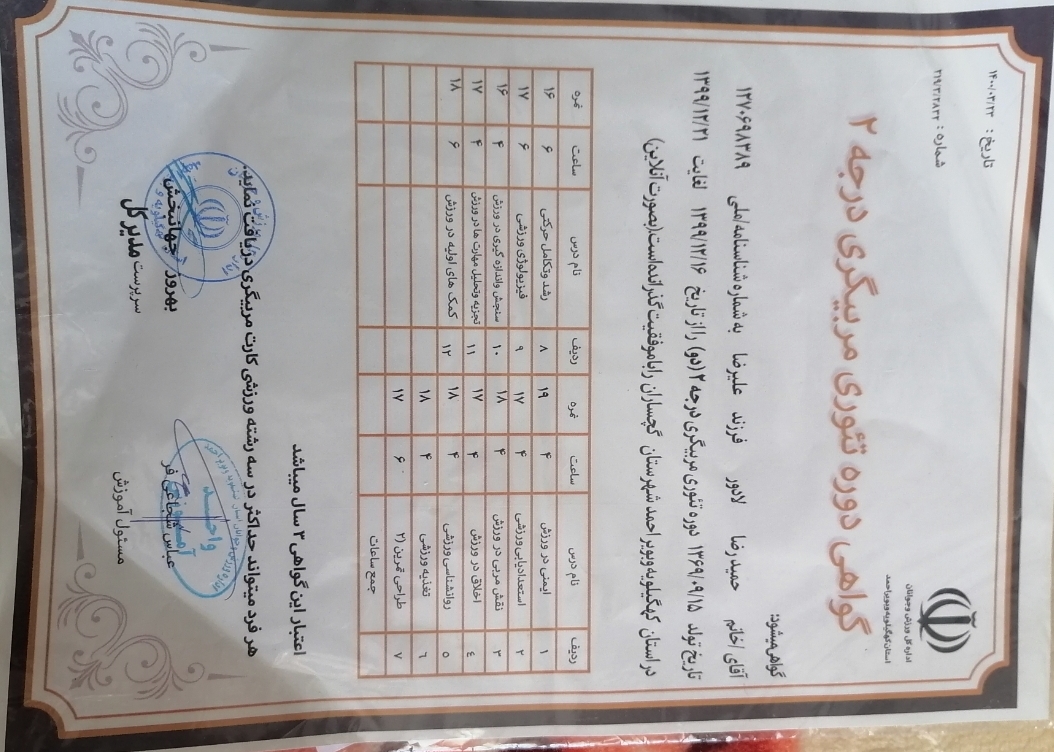 اداره کل ورزش و جوانان
استان کهگیلویه و بویراحمد
تاریخ : ۱۴۰۰/۰۳/۲۳
شماره : ۳۱۹۳/۲۸۳۳
گواهی دوره تئوری مربیگری درجه ۲
گواهی میشود:
آقای /خانم حمیدرضا لادور فرزند علیرضا به شماره شناسنامه/ملی ۱۲۷۰۶۹۸۳۸۹
تاریخ تولد ۱۳۶۹/۰۹/۱۵ دوره تئوری مربیگری درجه ۲(دو) را از تاریخ ۱۳۹۹/۱۲/۱۶ لغایت ۱۳۹۹/۱۲/۲۱
در استان کهگیلویه وبویر احمد شهرستان گچساران را باموفقیت گذرانده است.(بصورت آنلاین)
ردیف نام درس ساعت نمره ردیف نام درس ساعت نمره
۱ ایمنی در ورزش ۴ ۱۹ ۸ رشد وتکامل حرکتی ۶ ۱۶
۲ استعدادیابی ورزشی ۴ ۱۷ ۹ فیزیولوژی ورزشی ۶ ۱۷
۳ نقش مربی در ورزش ۴ ۱۸ ۱۰ سنجش واندازه گیری در ورزش ۴ ۱۶
۴ اخلاق در ورزش ۴ ۱۷ ۱۱ تجزیه وتحلیل مهارت ها در ورزش ۴ ۱۷
۵ روانشناسی ورزشی ۴ ۱۸ ۱۲ کمک های اولیه در ورزش ۶ ۱۸
۶ تغذیه ورزشی ۴ ۱۸
۷ طراحی تمرین (۲ ۶ ۱۷
جمع ساعات
اعتبار این گواهی ۳ سال میباشد
هر فرد میتواند حداکثر در سه رشته ورزشی کارت مربیگری دریافت نماید.
عباس شجاعی فر
مسئول آموزش
واحد
آموزش
بهروز جهانبخش
سرپرست مدیرکل